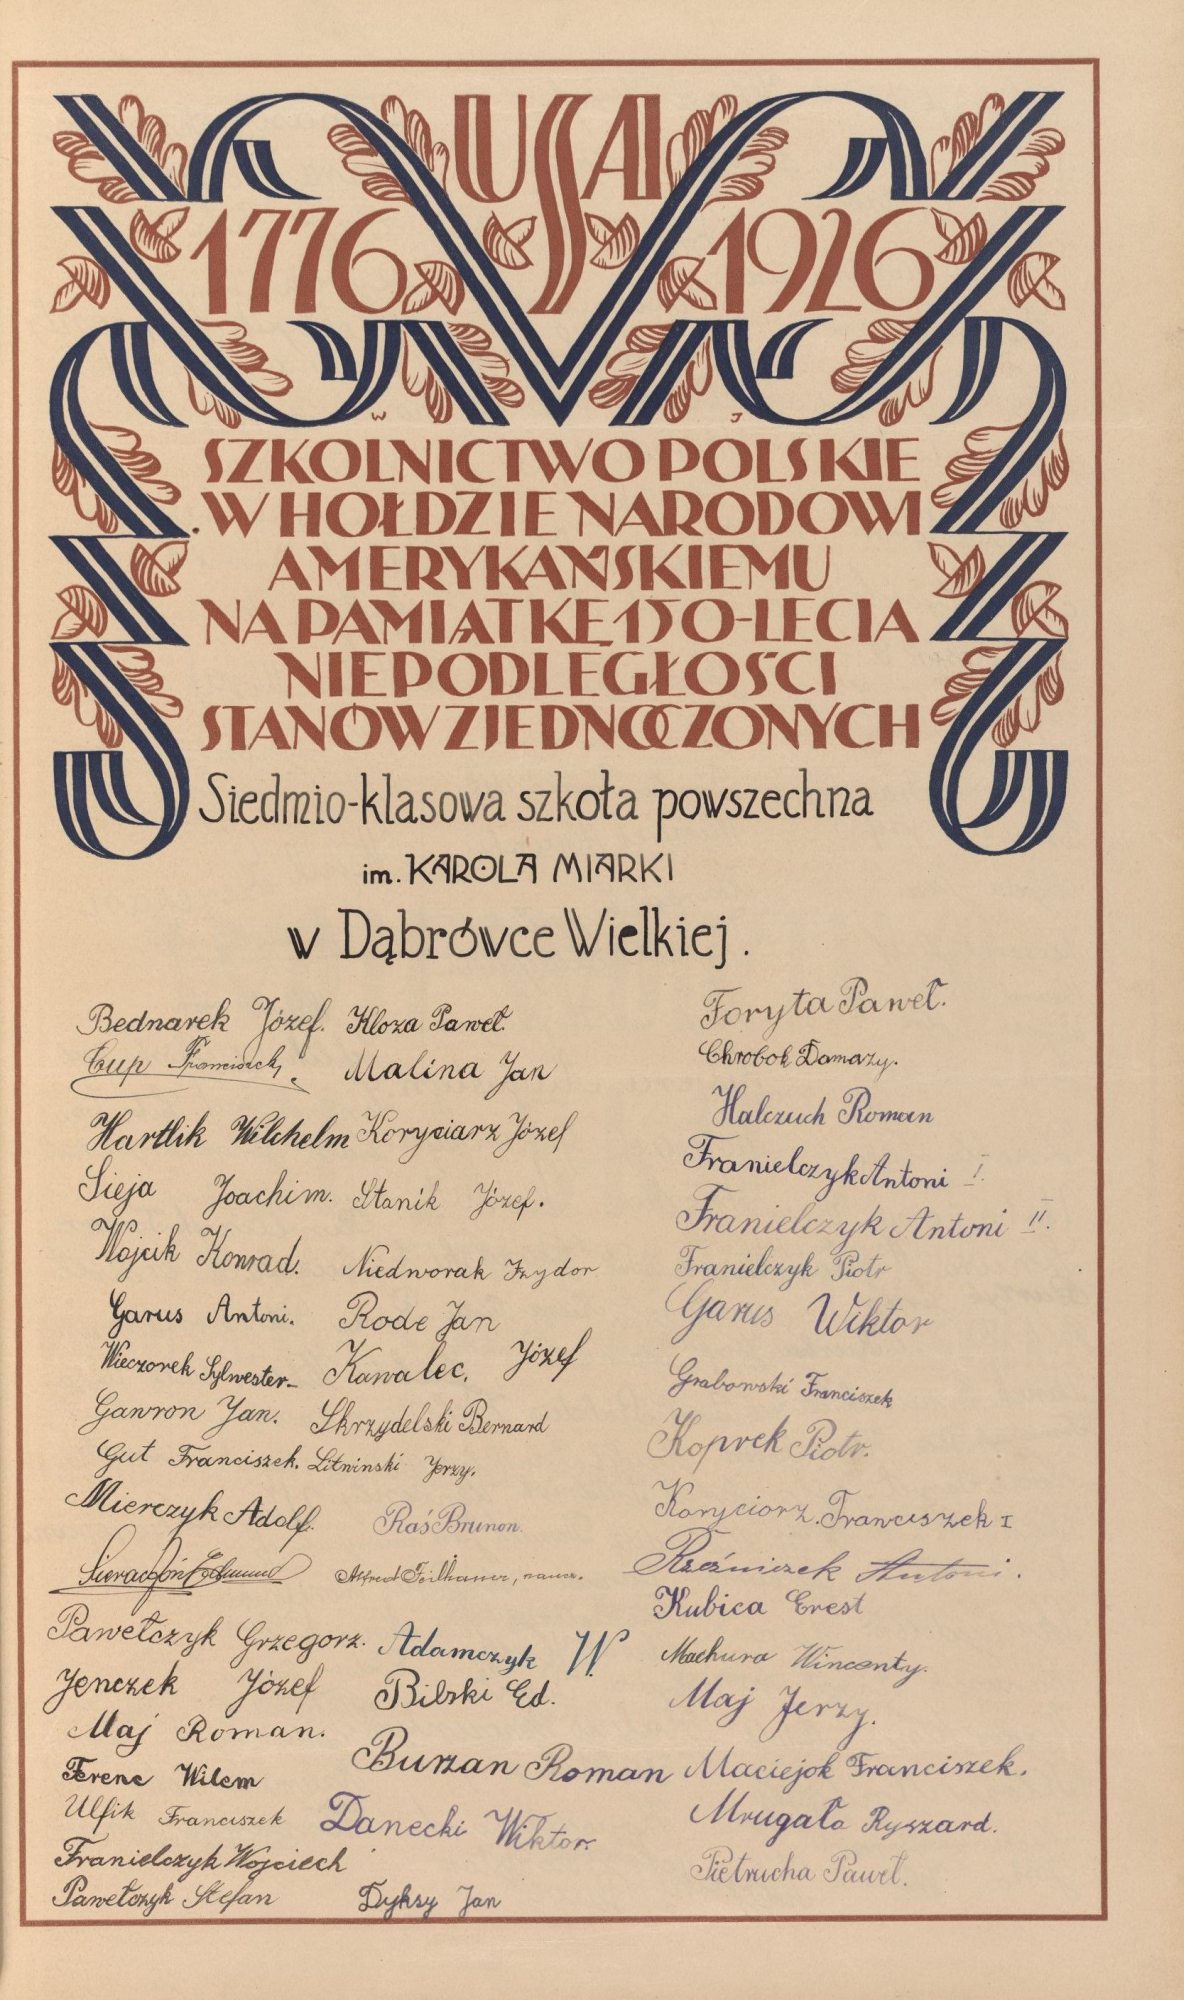 USA
1776 1926
W J
SZKOLNICTWO POLSKIE
W HOŁDZIE NARODOWI
AMERYKAŃSKIEMU
NA PAMIĄTKĘ 150-LECIA
NIEPODLEGŁOŚCI
STANÓW ZJEDNOCZONYCH
Siedmio-klasowa szkoła powszechna
im. KAROLA MIARKI
w Dąbrówce Wielkiej.
Bednarek Józef.
Cup Franciszek,
Hartlik Wilchelm
Sieja Joachim.
Wojcik Konrad.
Garus Antoni.
Wieczorek Sylwester
Gawron Jan.
Gut Franciszek.
Mierczyk Adolf.
Edmund
Pawełczyk Grzegorz.
Jenczek Józef
Maj Roman.
Ferenc Wilem
Ulfik Franciszek
Franielczyk Wojciech
Pawełczyk Stefan
Kloza Paweł.
Malina Jan
Koryciarz Józef
Stanik Józef.
Niedworak Izydor
Rode Jan
Kawalec. Józef
Skrzydelski Bernard
Litwinski Jerzy.
Raś Brunon.
Alfred Feilhauer, naucz.
Adamczyk W.
Bilski Ed.
Burzan Roman
Danecki Wiktor.
Dyksy Jan
Foryta Paweł.
Chrobok Damazy.
Halczuch Roman
Franielczyk Antoni I.
Franielczyk Antoni II.
Franielczyk Piotr
Garus Wiktor
Grabowski Franciszek
Koprek Piotr.
Koryciorz. Franciszek I
Rzeźniczek Antoni.
Kubica Erest
Machura Wincenty.
Maj Jerzy.
Maciejok Franciszek.
Mrugała Ryszard.
Pietrucha Paweł.